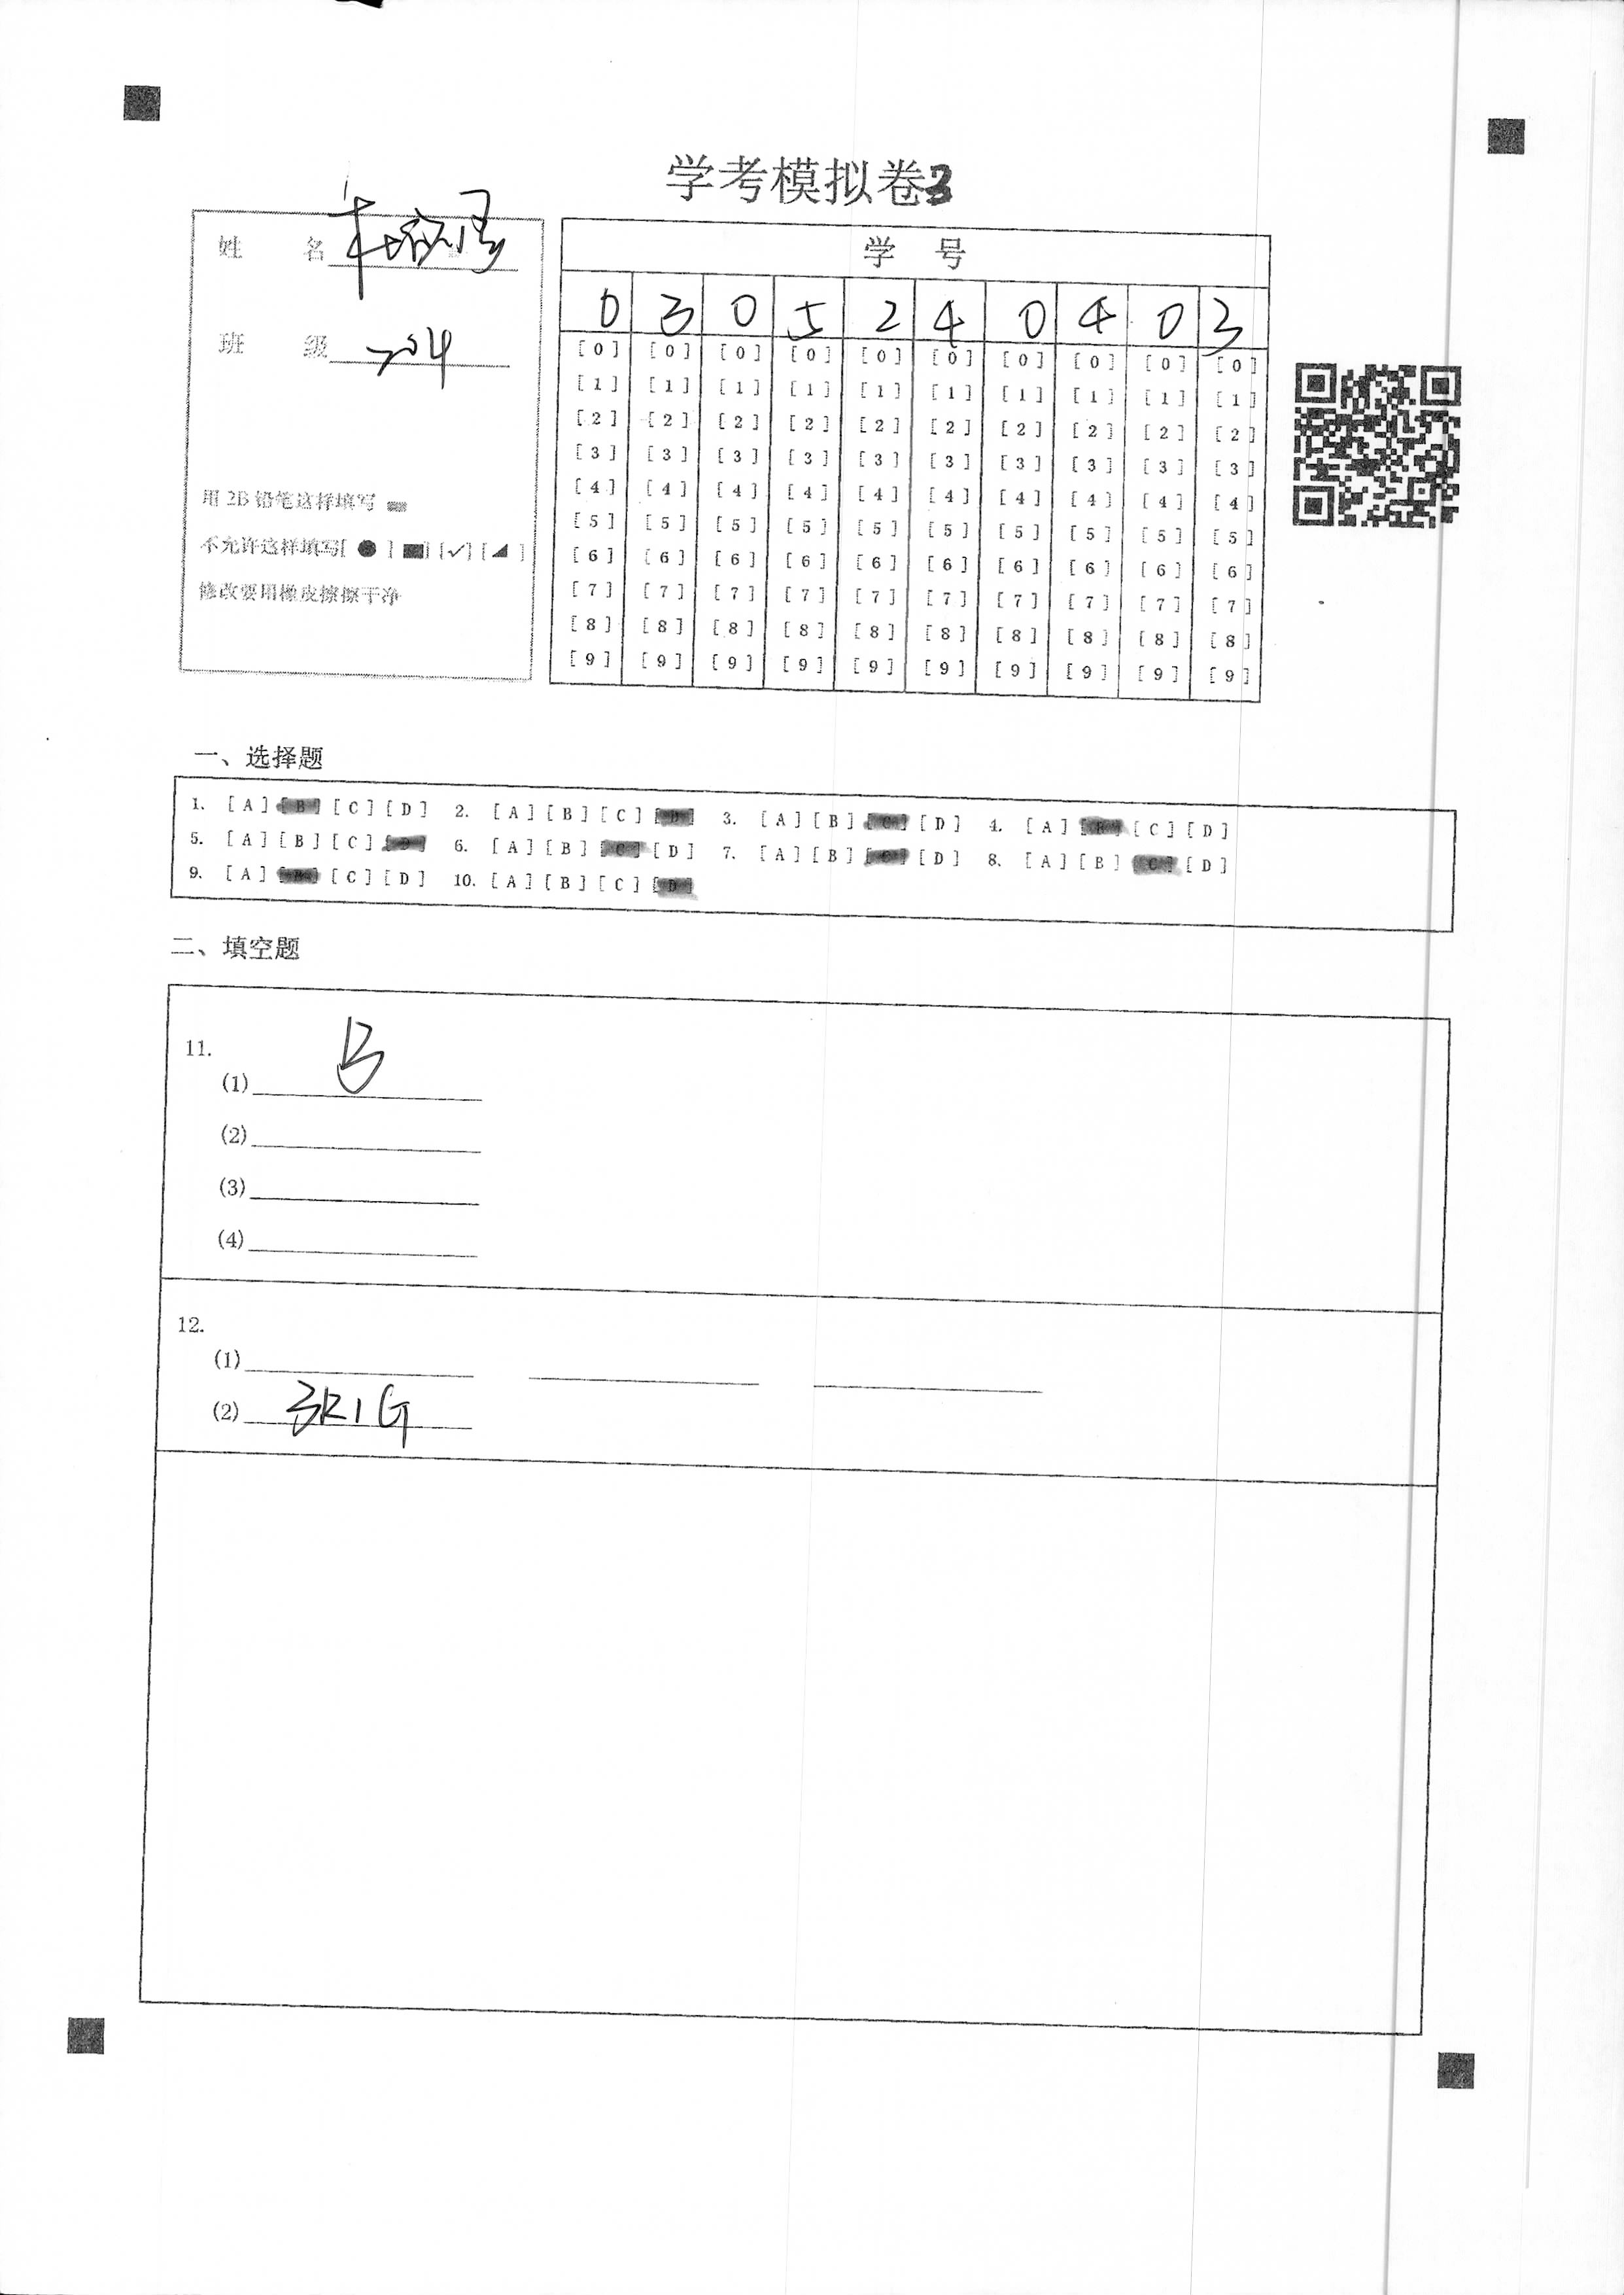 学考模拟卷3
姓 名
班 级 204
用 2B 铅笔这样填写
不允许这样填写[ ● ] [■] [✓] [◢ ]
修改要用橡皮擦擦干净
学 号
0 3 0 5 2 4 0 4 0 3
[0] [0] [0] [0] [0] [0] [0] [0] [0] [0]
[1] [1] [1] [1] [1] [1] [1] [1] [1] [1]
[2] [2] [2] [2] [2] [2] [2] [2] [2] [2]
[3] [3] [3] [3] [3] [3] [3] [3] [3] [3]
[4] [4] [4] [4] [4] [4] [4] [4] [4] [4]
[5] [5] [5] [5] [5] [5] [5] [5] [5] [5]
[6] [6] [6] [6] [6] [6] [6] [6] [6] [6]
[7] [7] [7] [7] [7] [7] [7] [7] [7] [7]
[8] [8] [8] [8] [8] [8] [8] [8] [8] [8]
[9] [9] [9] [9] [9] [9] [9] [9] [9] [9]
一、选择题
1. [A] [B] [C] [D] 2. [A] [B] [C] [D] 3. [A] [B] [C] [D] 4. [A] [B] [C] [D]
5. [A] [B] [C] [D] 6. [A] [B] [C] [D] 7. [A] [B] [C] [D] 8. [A] [B] [C] [D]
9. [A] [B] [C] [D] 10. [A] [B] [C] [D]
二、填空题
11.
(1) B
(2)
(3)
(4)
12.
(1)
(2) BRIG